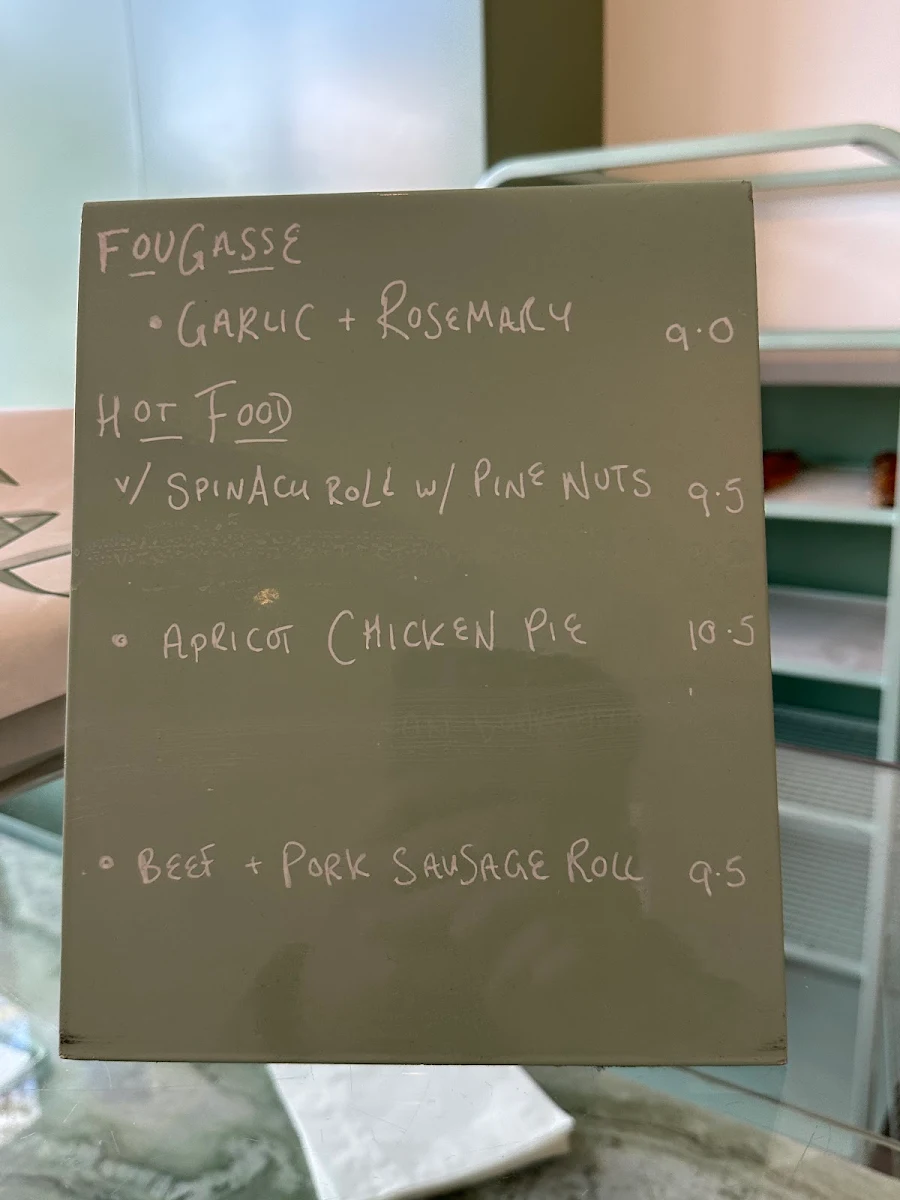 FOUGASSE
• GARLIC + ROSEMARY 9.0
HOT FOOD
V/ SPINACH ROLL W/ PINE NUTS 9.5
• APRICOT CHICKEN PIE 10.5
• BEEF + PORK SAUSAGE ROLL 9.5